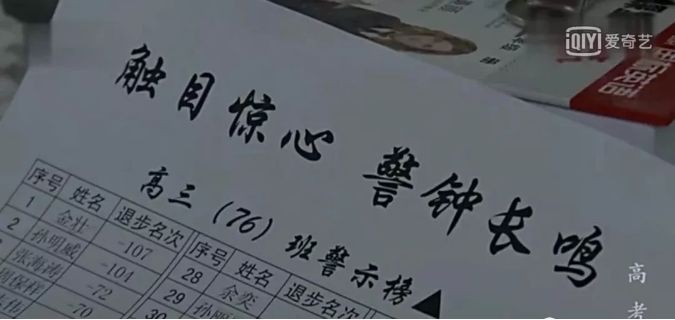 iQIYI 爱奇艺
触目惊心 警钟长鸣
高三（76）班警示榜▲
序号 姓名 退步名次 序号 姓名 退步名次
1 金壮 -107 28 余奕
2 孙明威 -104 29
张海涛 -72 30
-70
高考